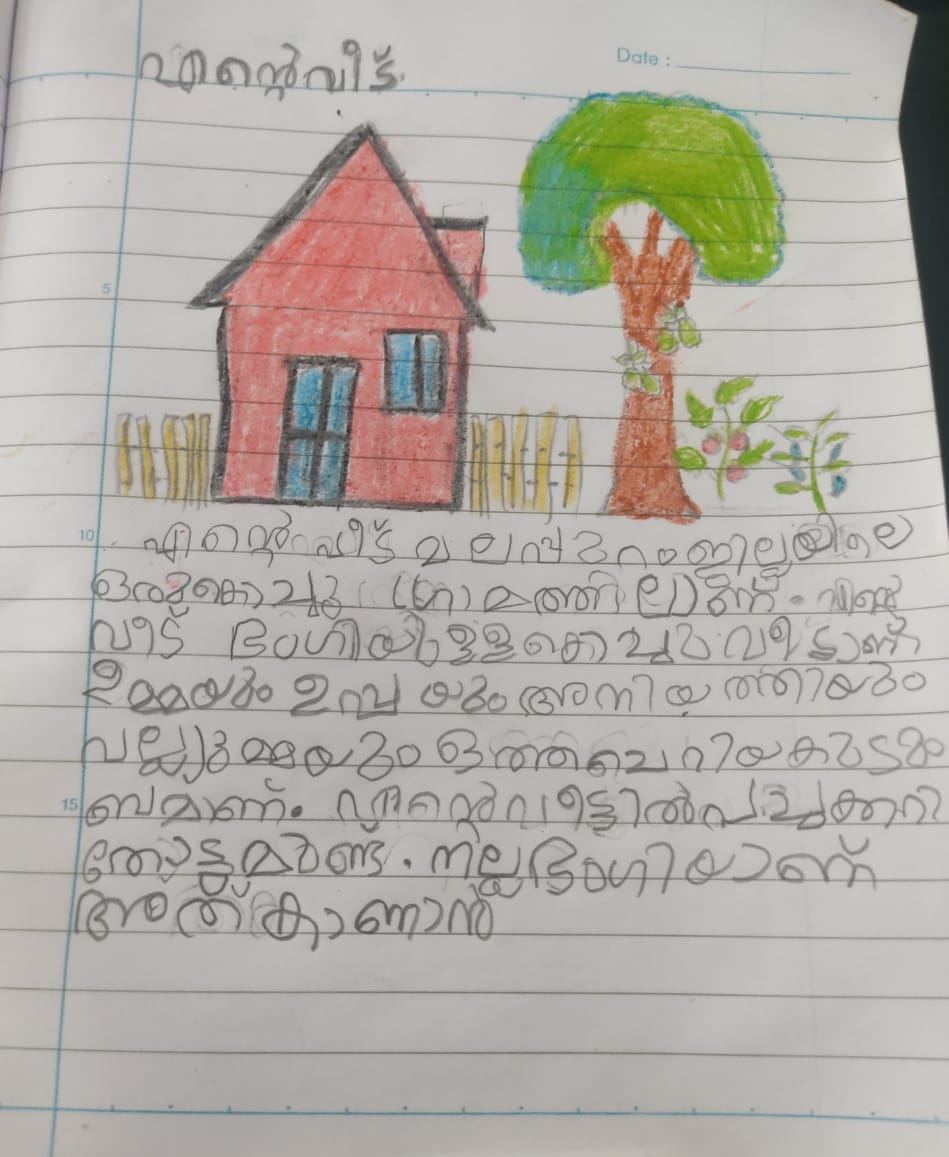 എൻ്റെവീട്.
Date :
5
10 എൻ്റെ വീട് മലപ്പുറംജില്ലയിലെ
ഒരുകൊച്ചു ഗ്രാമത്തിലാണ്. എൻ്റെ
വീട് ഭംഗിയുള്ളകൊച്ചുവീടാണ്
ഉമ്മയും ഉപ്പയും അനിയത്തിയും
വല്ല്യുമ്മയും ഒത്തചെറിയകുടും
15 ബമാണ്. എൻ്റെവീട്ടിൽപച്ചക്കറി
തോട്ടമുണ്ട്. നല്ലഭംഗിയാണ്
അത് കാണാൻ